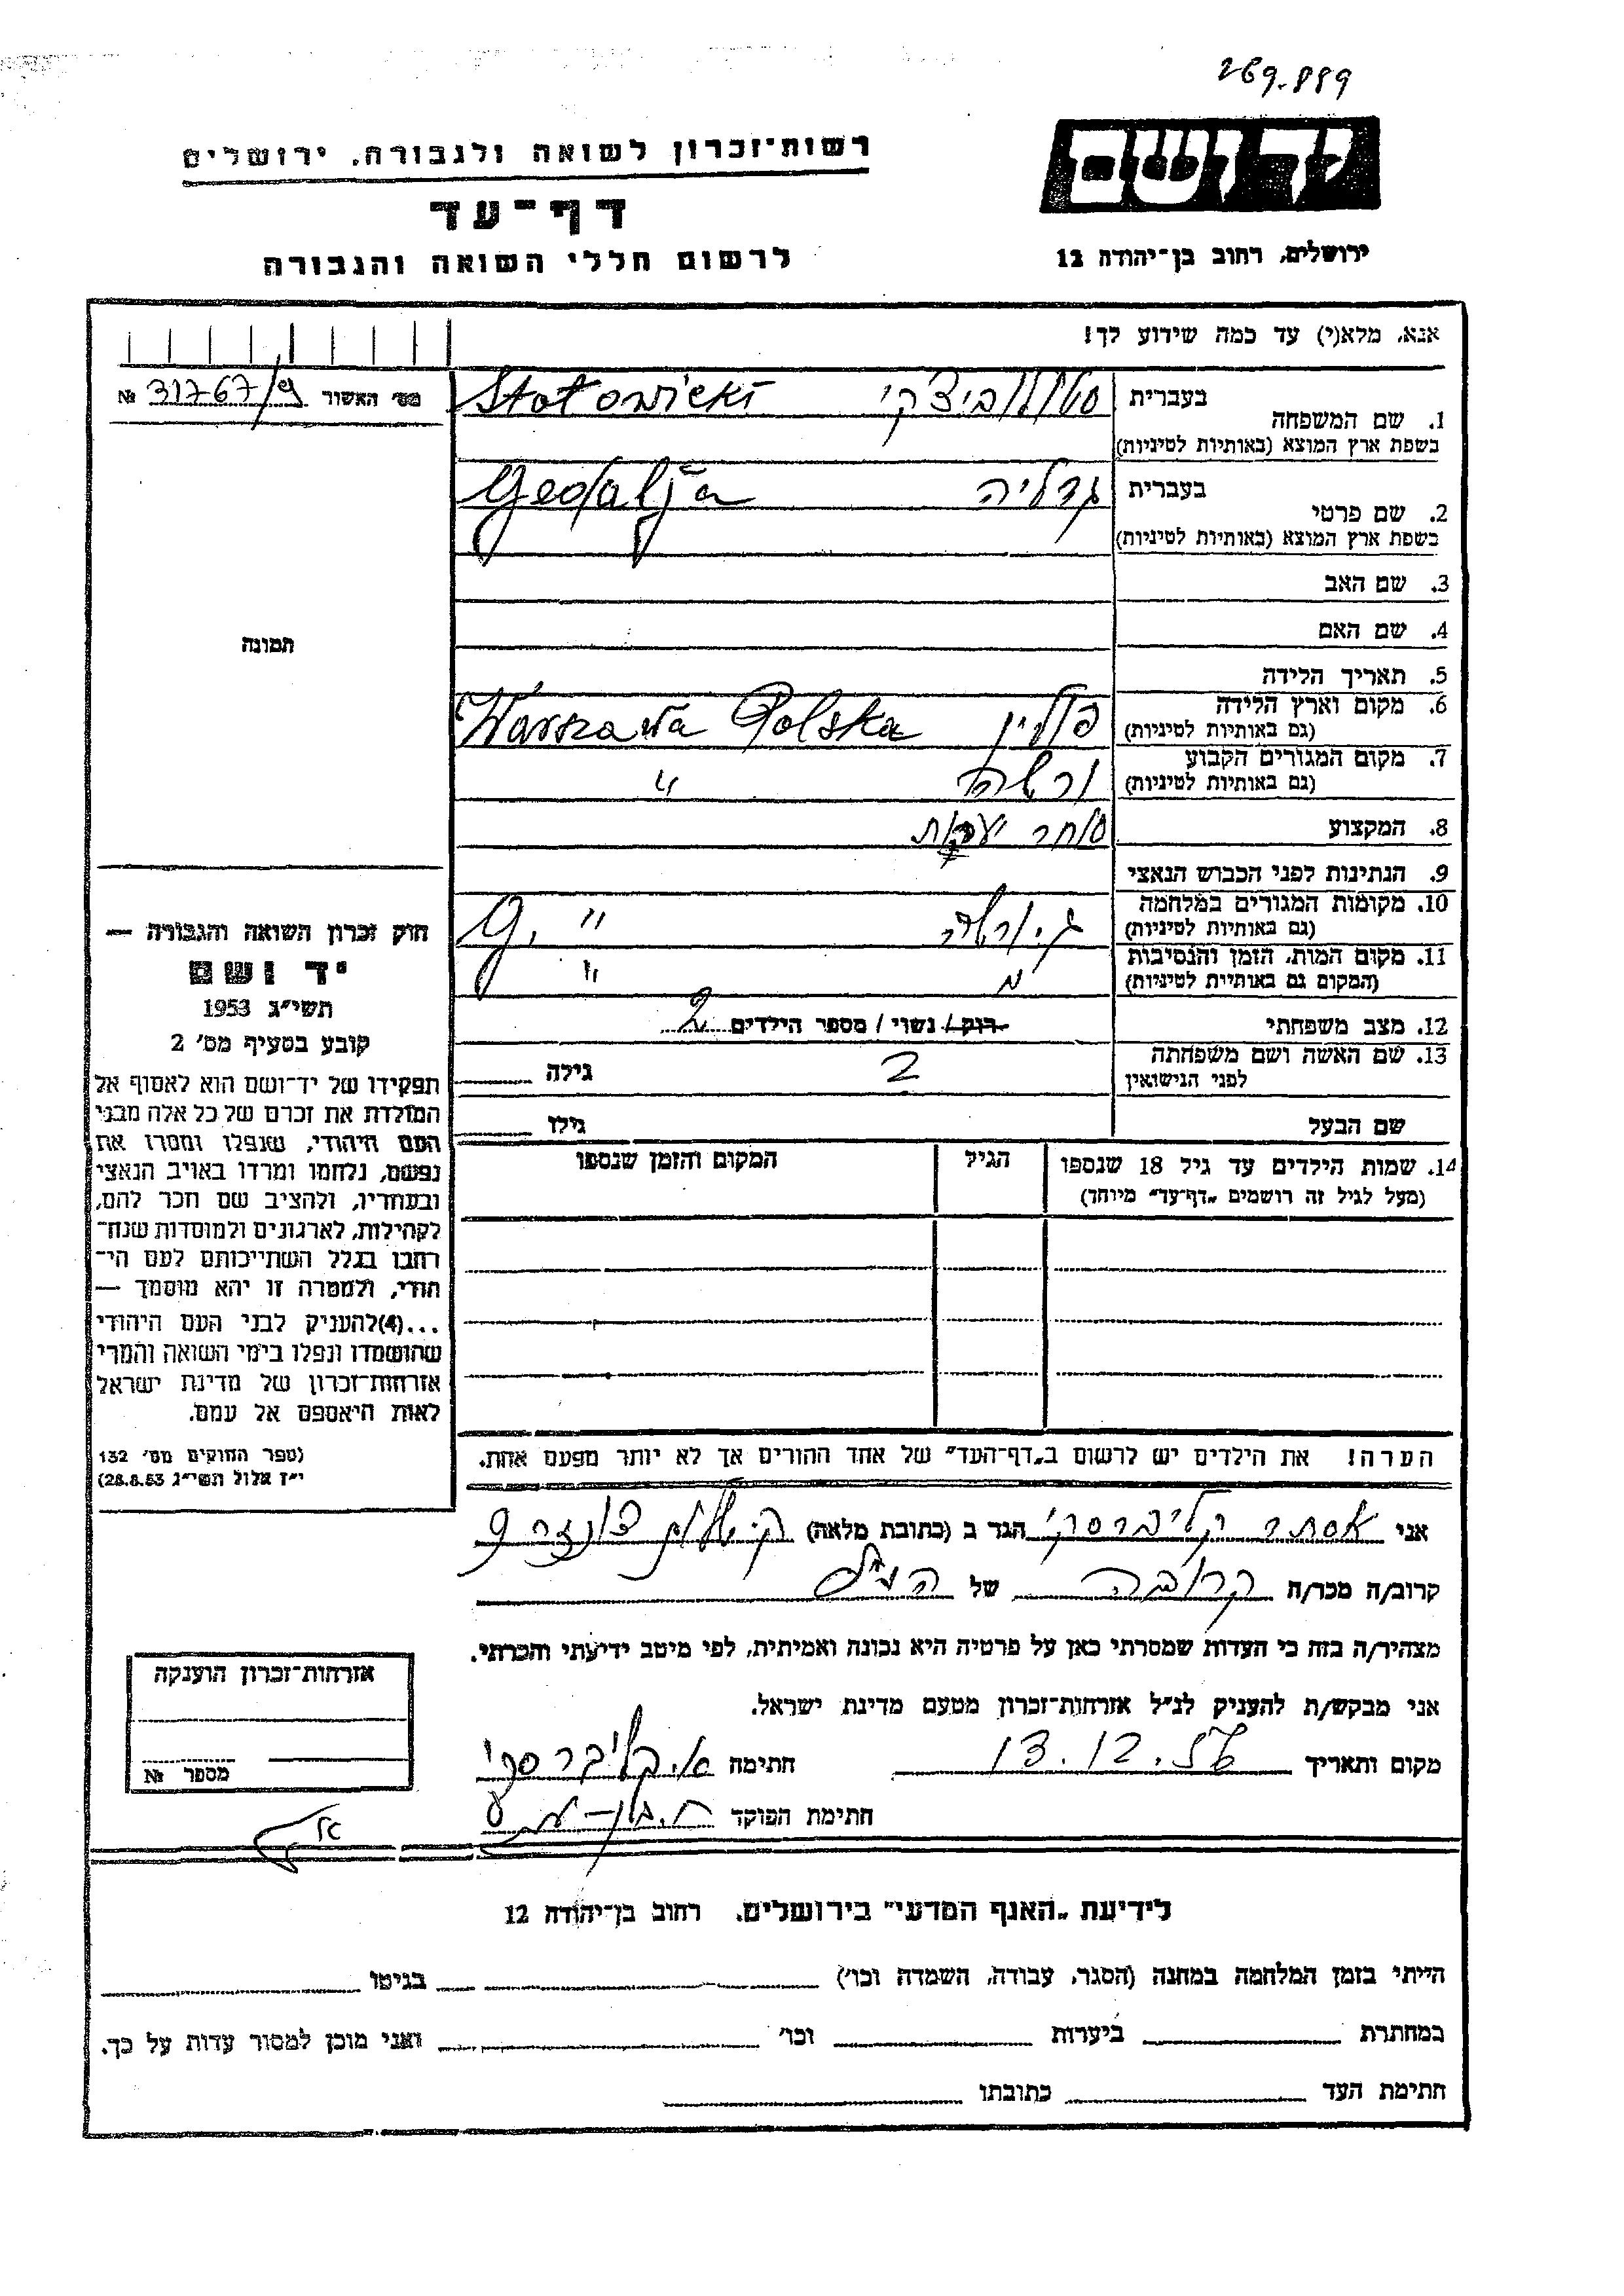 269.889
יד ושם
ירושלים, רחוב בן־יהודה 12
רשות־זכרון לשואה ולגבורה, ירושלים
דף־עד
לרשום חללי השואה והגבורה
אנא, מלא(י) עד כמה שידוע לך!
מס׳ האשור № 31767/9
תמונה
חוק זכרון השואה והגבורה —
יד ושם
תשי״ג 1953
קובע בסעיף מס׳ 2
תפקידו של יד־ושם הוא לאסוף אל
המולדת את זכרם של כל אלה מבני
העם היהודי, שנפלו ומסרו את
נפשם, נלחמו ומרדו באויב הנאצי
ובעוזריו, ולהציב שם וזכר להם,
לקהילות, לארגונים ולמוסדות שנח־
רבו בגלל השתייכותם לעם הי־
הודי, ולמטרה זו יהא מוסמך —
...(4)להעניק לבני העם היהודי
שהושמדו ונפלו בימי השואה והמרי
אזרחות־זכרון של מדינת ישראל
לאות היאספם אל עמם.
(ספר החוקים מס׳ 132
י״ז אלול תשי״ג 28.8.53)
1. שם המשפחה
בעברית
Stołowicki
בשפת ארץ המוצא (באותיות לטיניות)
2. שם פרטי
בעברית גדליה
Gedalja
בשפת ארץ המוצא (באותיות לטיניות)
3. שם האב
4. שם האם
5. תאריך הלידה
6. מקום וארץ הלידה
(גם באותיות לטיניות) פולין Warszawa Polska
7. מקום המגורים הקבוע
(גם באותיות לטיניות) ורשה "
8. המקצוע סוחר
9. הנתינות לפני הכבוש הנאצי
10. מקומות המגורים במלחמה
(גם באותיות לטיניות) ג. ורשה " G.
11. מקום המות, הזמן והנסיבות
(המקום גם באותיות לטיניות) " "
12. מצב משפחתי רוק / נשוי / מספר הילדים 2
13. שם האשה ושם משפחתה
לפני הנישואין 2 גילה
שם הבעל גילו
14. שמות הילדים עד גיל 18 שנספו
(מעל לגיל זה רושמים „דף־עד״ מיוחד)
הגיל
המקום והזמן שנספו
הערה! את הילדים יש לרשום ב„דף־העד״ של אחד ההורים אך לא יותר מפעם אחת.
אני אסתר קליברסקי הגר ב (כתובת מלאה)
קרוב/ה מכר/ה קרובה של הנ״ל
מצהיר/ה בזה כי העדות שמסרתי כאן על פרטיה היא נכונה ואמיתית, לפי מיטב ידיעתי והכרתי.
אני מבקש/ת להעניק לנ״ל אזרחות־זכרון מטעם מדינת ישראל.
מקום ותאריך 13.12.56 חתימה א. קליברסקי
חתימת הפוקד
אזרחות־זכרון הוענקה
מספר №
לידיעת „האגף המדעי״ בירושלים, רחוב בן־יהודה 12
הייתי בזמן המלחמה במחנה (הסגר, עבודה, השמדה וכו׳) בגיטו
במחתרת ביערות וכו׳ ואני מוכן למסור עדות על כך.
חתימת העד כתובתו